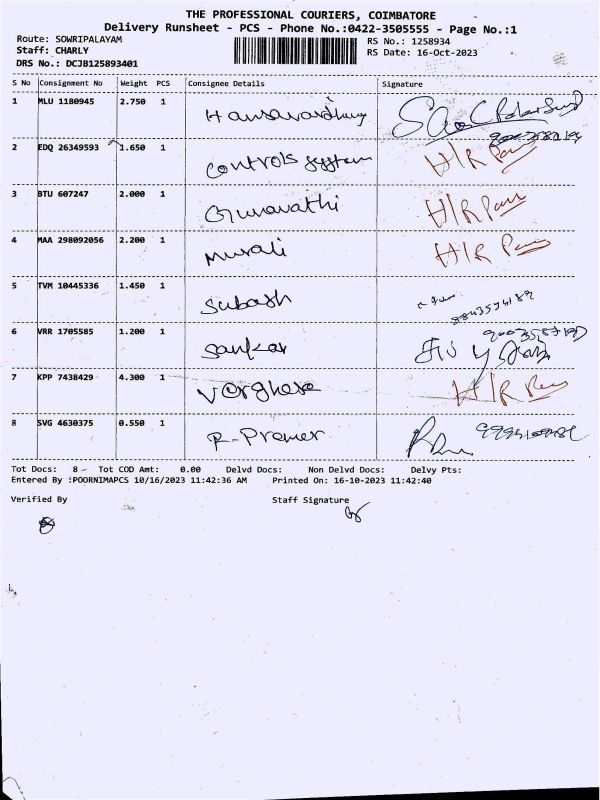 THE PROFESSIONAL COURIERS, COIMBATORE
Delivery Runsheet - PCS - Phone No.:0422-3505555 - Page No.:1
Route: SOWRIPALAYAM RS No.: 1258934
Staff: CHARLY RS Date: 16-Oct-2023
DRS No.: DCJB125893401
S No Consignment No Weight PCS Consignee Details Signature
1 MLU 1180945 2.750 1
2 EDQ 26349593 1.650 1 Controls System H/R
3 BTU 607247 2.000 1 Gunavathi H/R
4 MAA 298092056 2.200 1 Murali H/R
5 TVM 10445336 1.450 1 Subash
6 VRR 1705585 1.200 1 Sankar
7 KPP 7438429 4.300 1 Varghese H/R
8 SVG 4630375 0.550 1 R-Premer
Tot Docs: 8 Tot COD Amt: 0.00 Delvd Docs: Non Delvd Docs: Delvy Pts:
Entered By :POORNIMAPCS 10/16/2023 11:42:36 AM Printed On: 16-10-2023 11:42:40
Verified By Staff Signature